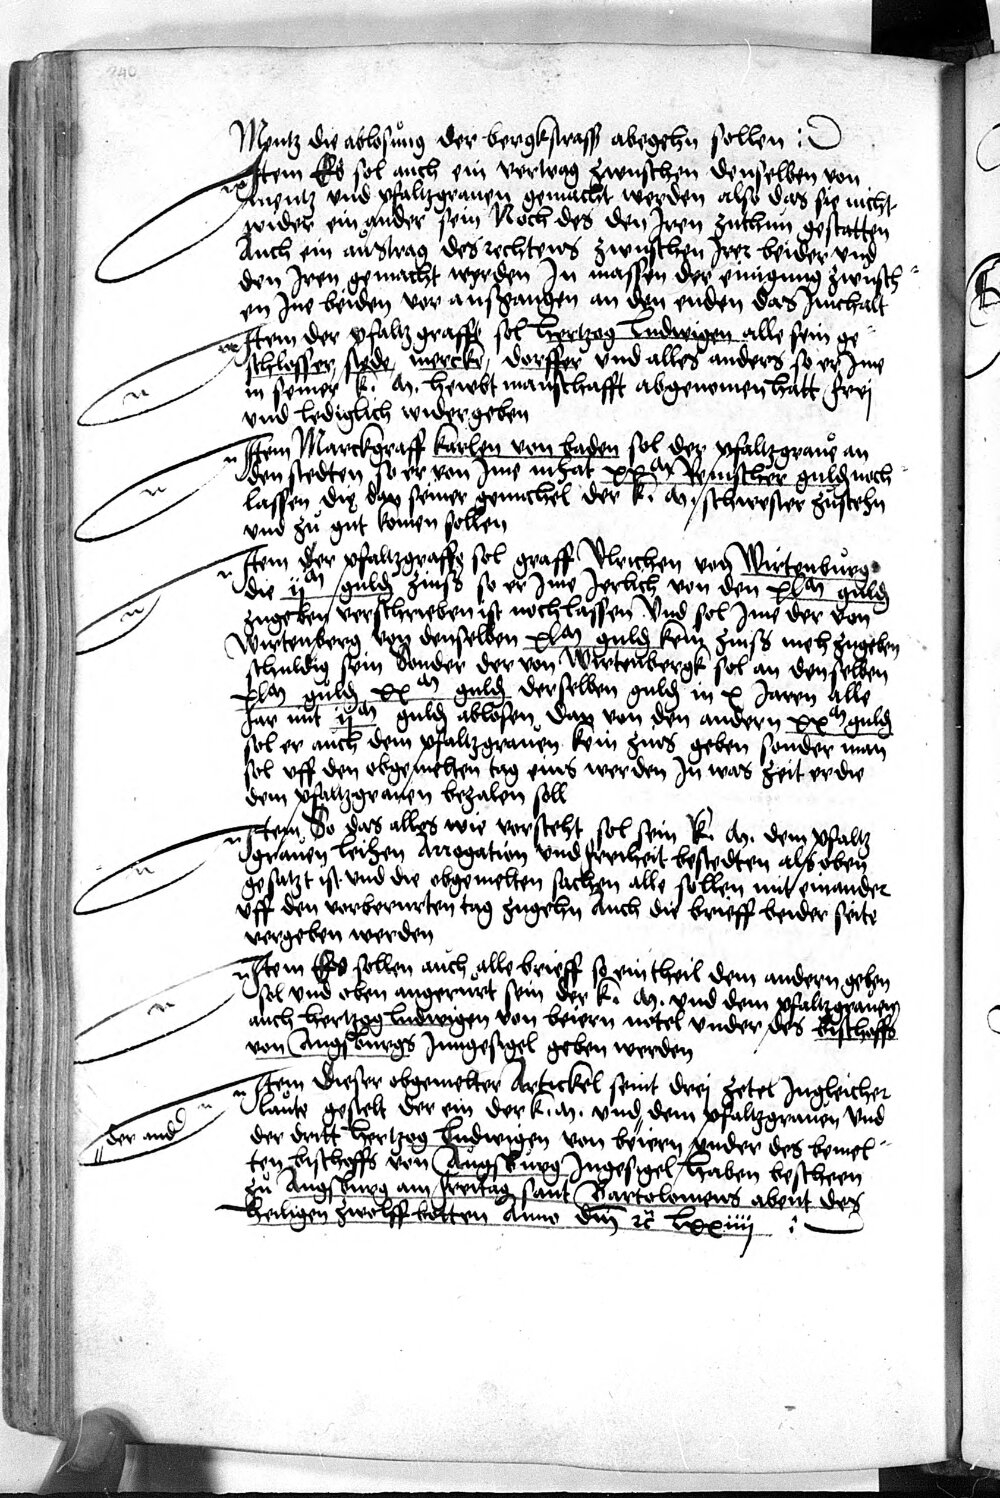 240
Mentz die ablosung der bergkstrass abegehn sollen :
Item Es sol auch ein vertrag zwuschen denselben von
mentz vnd pfaltzgrauen gemacht werden also das sie nicht
wider ein ander sein Noch des den Iren zuthun gestatten
Auch ein austrag des rechtens zwuschen Irer beider vnd
den Iren gemacht werden In massen der einigung zwusch
en Ine beiden vor ausgangen an den enden das Innhalt
Item der pfaltzgraffe sol hertzog Ludwigen alle sein ge
schlosser, stede, merckt, dorffer vnd alles anders so er Ime
in seiner k. M. hewbtmanschafft abgenomen hatt frei
vnd lediglich widergeben
Item Marckgraff karlen von baden sol der pfaltzgraue an
den stedten so er von Ime inhat xxM Reinischer guld noch
lassen die dan seiner gemachel der k. M. schwester zusteen
vnd zu gut komen sollen
Item der pfaltzgraffe sol graff Vlrichen von Wirtenburg
die ijM guld zinss so er Ime Jerlich von den xlM guld
zugeben verschrieben ist nochlassen Vnd sol Ime der von
Wirtenberg von denselben xlM guld kein zinss meh zugeben
schuldig sein Sonder der von Wirtenbergk sol an denselben
xlM guld xxM guld derselben guld in x Jaren alle
Jar mit ijM guld ablosen dan von den andern xxM guld
sol er auch dem pfaltzgrauen kein zins geben sonder man
sol vff den obgemelten tag eins werden In was zeit er die
dem pfaltzgrauen bezalen soll
Item So das alles wie vorsteht sol sein k. M. dem pfaltz
grauen leihen Arrogation vnd freiheit bestedten als oben
gesatzt ist vnd die obgemelten sachen alle sollen mit einander
vff den vorberurten tag zugehn Auch die brieff beider seite
vergeben werden
Item Es sollen auch alle brieff so ein theil dem andern geben
sol vnd oben angerurt sein der k. M. vnd dem pfaltzgrauen
auch hertzog ludwigen von beiern notel vnder des bischoffs
von Augspurgs Inngesigel geben werden
Item Dieser obgemelter Artickel seint drei zetel Ingleicher
laute gestelt der ein der k. M. vnd dem pfaltzgrauen vnd
der and
der dritt hertzog Ludwigen von beiern vnder des bemel
ten bischoffs von Augspurg Ingesigel haben bescheen
zu Augspurg am freitag sant Bartolomeus abent des
heiligen zwelffbotten Anno dm lxxiiij :